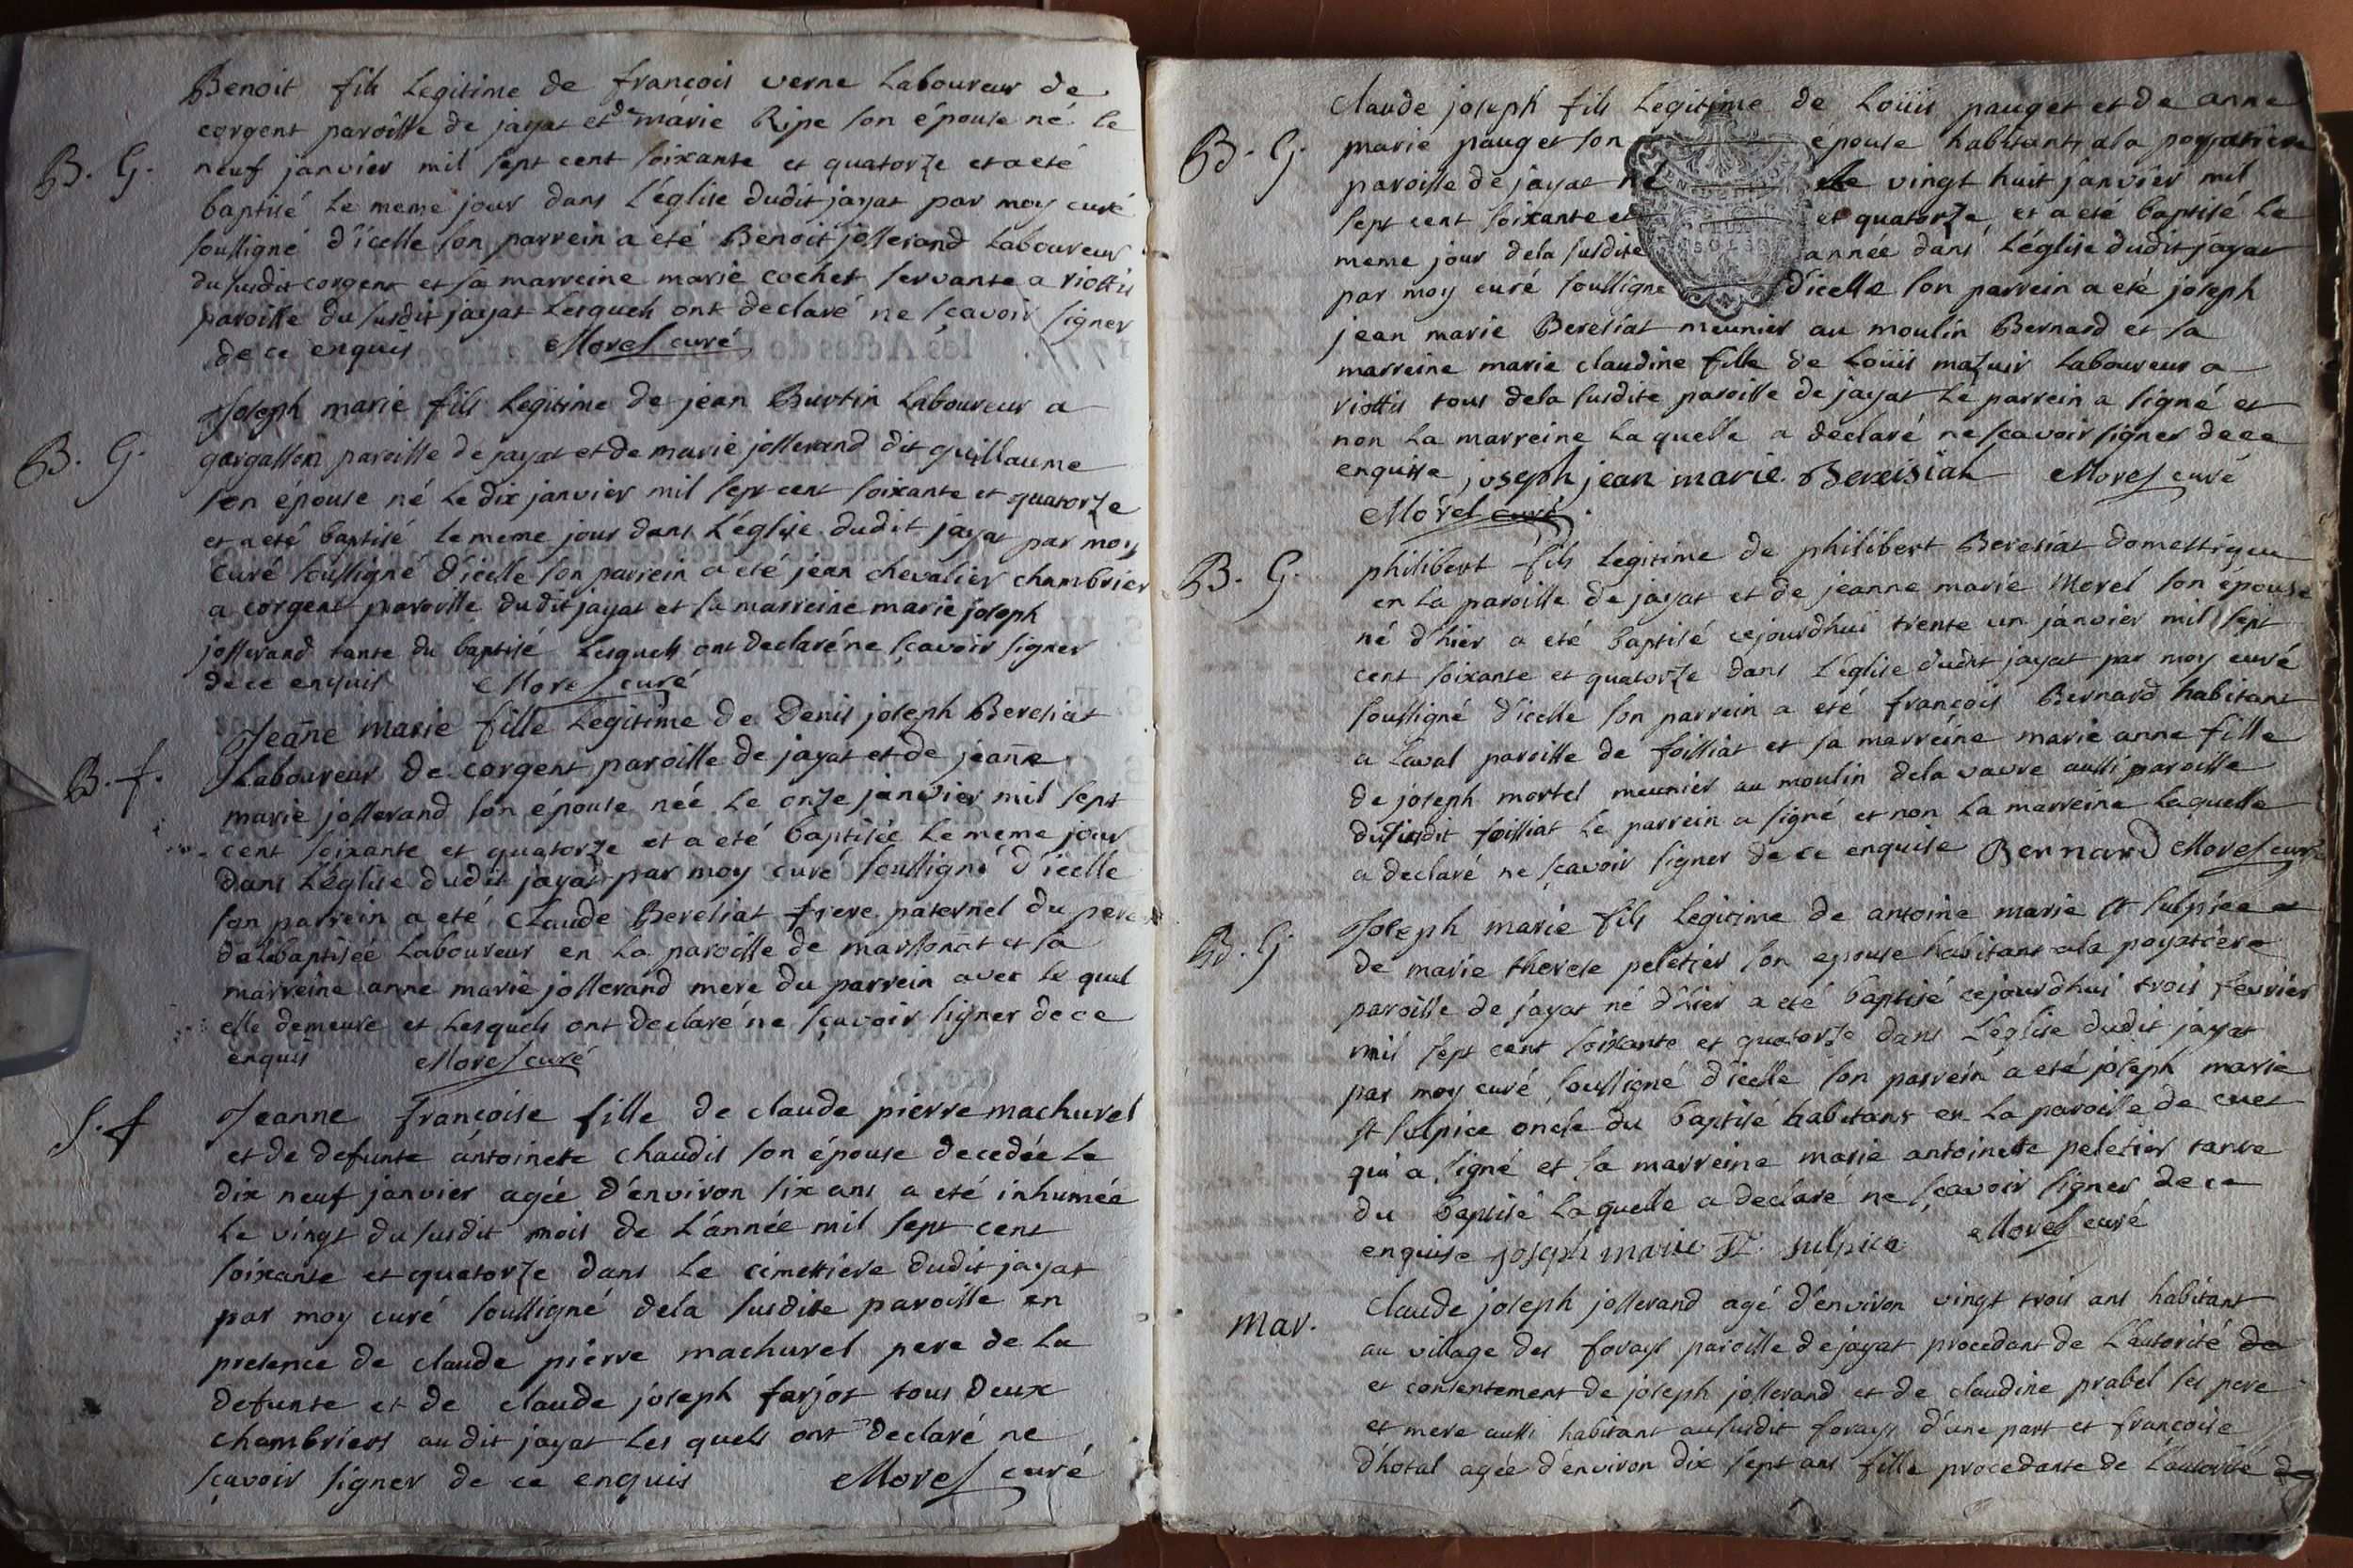 Benoit fils Legitime de françois verne Laboureur de
corgent paroisse de jayat et de marie Ripe son épouse né le
B. G. neuf janvier mil sept cent soixante et quatorze et a eté
baptisé Le meme jour dans L'église dudit jayat par moy curé
soussigné d'icelle son parrein a été Benoit jossserand Laboureur
du susdit corgent et sa marreine marie cochet servante a riottis
paroisse du susdit jayat Lesquels ont declaré ne sçavoir signer
de ce enquis Morel curé
Joseph marie fils Legitime de jean Burtin Laboureur a
B. G. gargasson paroisse de jayat et de marie josserand dit guillaume
son épouse né Le dix janvier mil sept cent soixante et quatorze
et a eté baptisé le meme jour dans L'église dudit jayat par moy
curé soussigné d'icelle son parrein a eté jean chevalier chambrier
a corgent paroisse dudit jayat et sa marreine marie joseph
josserand tante du baptisé Lesquels ont declaré ne sçavoir signer
de ce enquis Morel curé
Jeanne marie fille Legitime de Denis joseph Beresiat
B. f. Laboureur de corgent paroisse de jayat et de jeanne
marie josserand son épouse née Le onze janvier mil sept
cent soixante et quatorze et a eté baptisée Le meme jour
dans L'église dudit jayat par moy curé soussigné d'icelle
son parrein a eté Claude Beresiat frere paternel du pere
de la baptisée Laboureur en La paroisse de marsonat et sa
marreine anne marie josserand mere du parrein avec le quel
elle demeure et Lesquels ont declaré ne sçavoir signer de ce
enquis Morel curé
S. f Jeanne françoise fille de claude pierre machurel
et de defunte antoinete chaudit son épouse decedée Le
dix neuf janvier agée d'environ six ans a eté inhumée
Le vingt du susdit mois de L'année mil sept cent
soixante et quatorze dans Le cimettiere dudit jayat
par moy curé soussigné dela susdite paroisse en
presence de claude pierre machurel pere de La
defunte et de claude joseph farjot tous deux
chambriers audit jayat Les quels ont declaré ne
sçavoir signer de ce enquis Morel curé
claude joseph fils Legitime de Loüis pauget et de anne
B. G. marie pauget son épouse habitants a la
paroisse de jayat né Le vingt huit janvier mil
sept cent soixante et et quatorze et a eté baptisé Le
meme jour dela susdite année dans L'église dudit jayat
par moy curé soussigné d'icelle son parrein a eté joseph
jean marie Beresiat meunier au moulin Bernard et sa
marreine marie claudine fille de Loüis mazuir Laboureur a
riottis tous dela susdite paroisse de jayat Le parrein a signé et
non La marreine La quelle a declaré ne sçavoir signer de ce
enquise joseph jean marie Bereisiat Morel curé
Morel curé
B. G. philibert fils Legitime de philibert Beresiat domestique
en La paroisse de jayat et de jeanne marie Morel son épouse
né d'hier a eté baptisé cejourdhui trente un janvier mil sept
cent soixante et quatorze dans L'église dudit jayat par moy curé
soussigné d'icelle son parrein a eté françois Bernard habitant
a Laval paroisse de foissiat et sa marreine marie anne fille
de joseph mortel meunier au moulin dela vavre aussi paroisse
du susdit foissiat Le parrein a signé et non La marreine Laquelle
a declaré ne sçavoir signer de ce enquise Bernard Morel curé
Joseph marie fils Legitime de antoine marie St sulpice et
B. G de marie therese peletier son epouse habitant a la
paroisse de jayat né d'hier a eté baptisé cejourdhui trois fevrier
mil sept cent soixante et quatorze dans L'église dudit jayat
par moy curé soussigné d'icelle son parrein a eté joseph marie
St sulpice oncle du baptisé habitant en La paroisse de cuet
qui a signé et sa marreine marie antoinette peletier tante
du baptisé Laquelle a declaré ne sçavoir signer de ce
enquise joseph marie St. sulpice Morel curé
mar. Claude joseph josserand agé d'environ vingt trois ans habitant
au village des forays paroisse de jayat procedant de L'autorité de
et consentement de joseph josserand et de claudine prabel ses pere
et mere aussi habitant au susdit forays d'une part et françoise
d'hotal agée d'environ dix sept ans fille procedante de L'autorité de